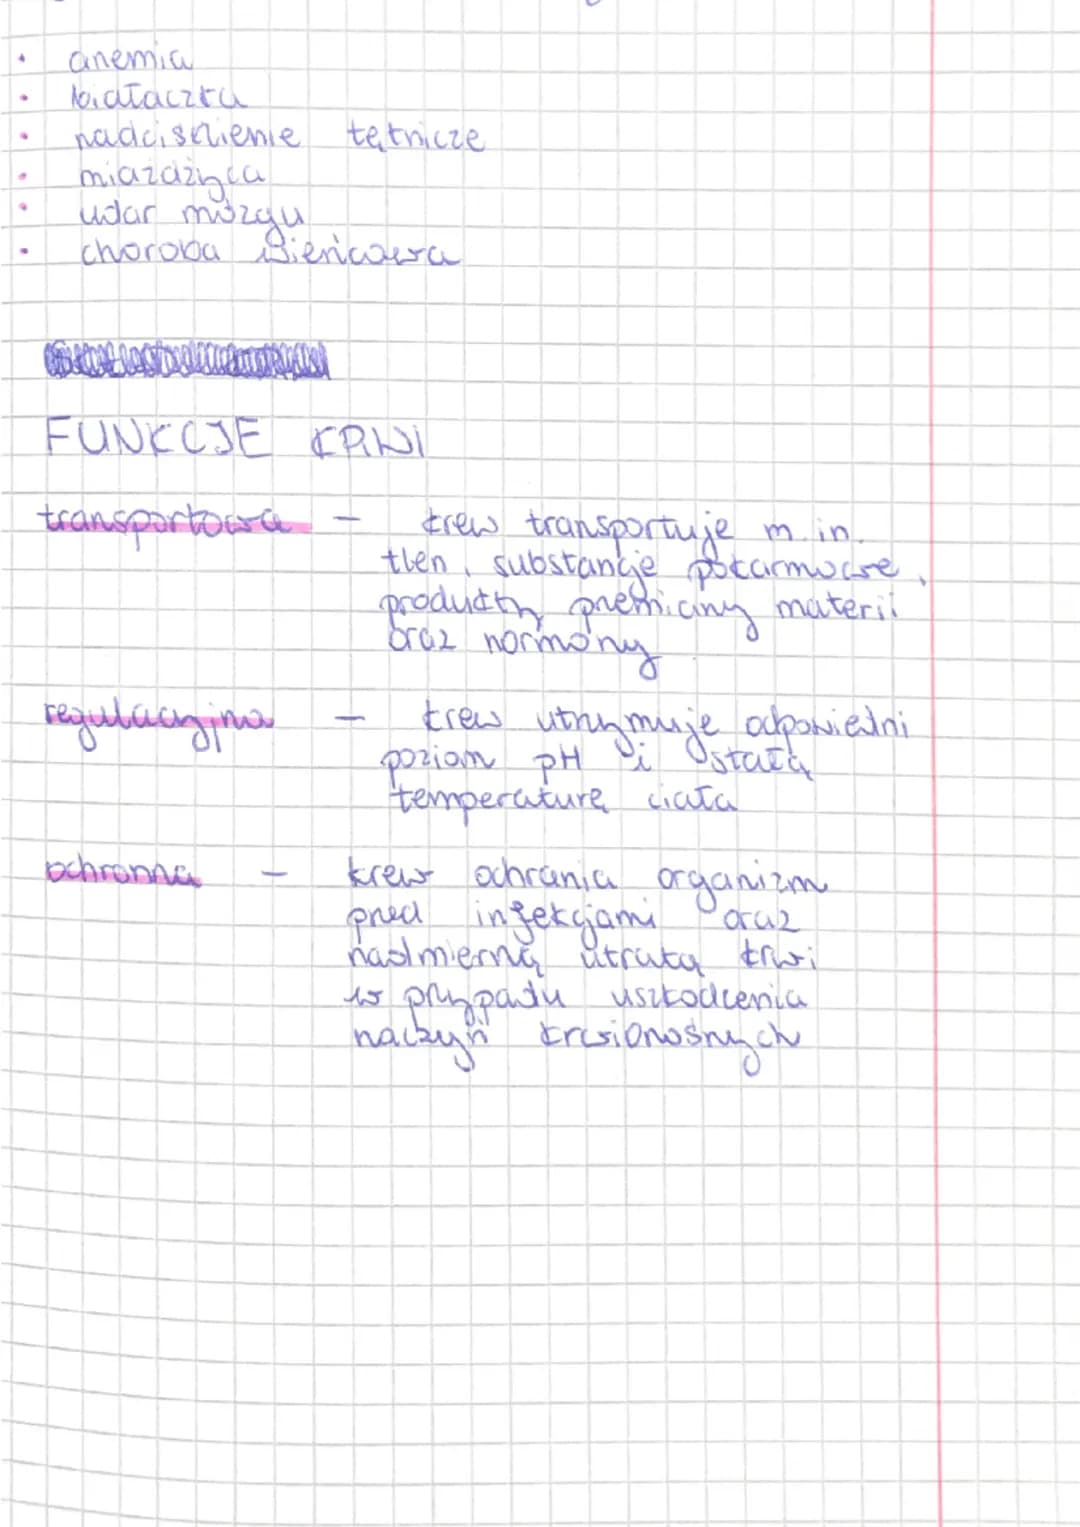 • anemia
• białaczka
• nadciśnienie tętnicze
• miażdżyca
• udar mózgu
• choroba wieńcowa
FUNKCJE KRWI
transportowa - krew transportuje m.in.
tlen, substancje pokarmowe,
produkty przemiany materii
oraz hormony
regulacyjna - krew utrzymuje odpowiedni
poziom pH i stałą
temperaturę ciała
ochronna - krew ochrania organizm
przed infekcjami oraz
nadmierną utratą krwi
w przypadu uszkodzenia
naczyń krwionośnych